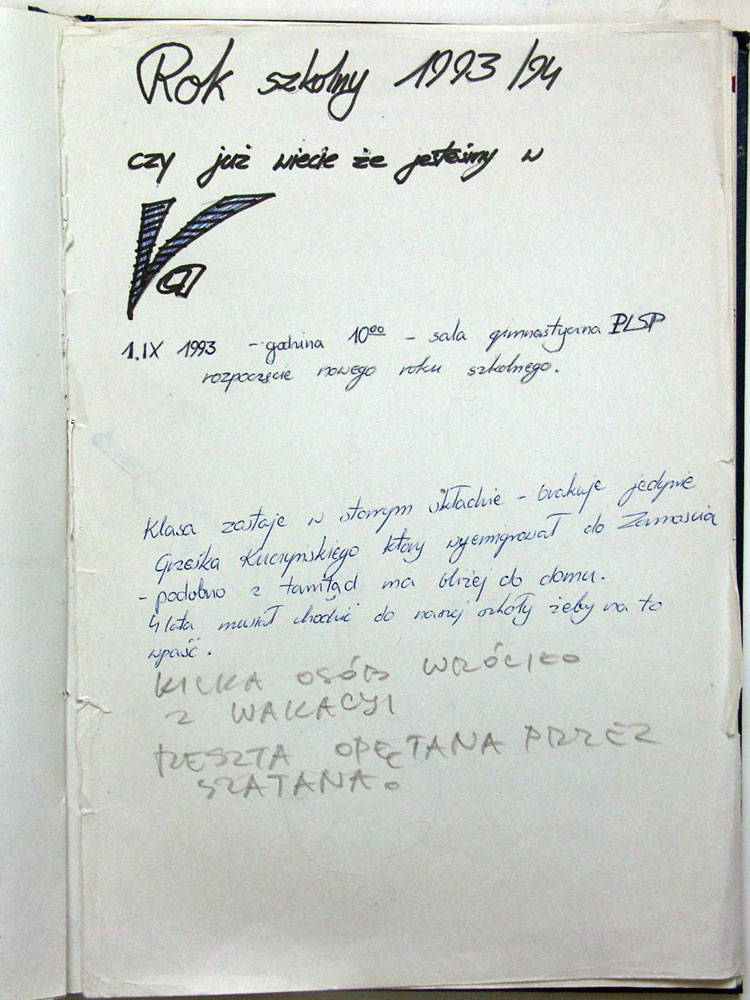 Rok szkolny 1993/94
czy już wiecie że jesteśmy w
Va
1.IX 1993 - godzina 10⁰⁰ - sala gimnastyczna PLSP
rozpoczęcie nowego roku szkolnego.
Klasa zostaje w starym składzie - brakuje jedynie
Grześka Kuczyńskiego który wyemigrował do Zamościa
- podobno z tamtąd ma bliżej do domu.
4 lata musiał chodzić do naszej szkoły żeby na to
wpaść.
KILKA OSÓB WRÓCIŁO
Z WAKACYJ
RESZTA OPĘTANA PRZEZ
SZATANA.